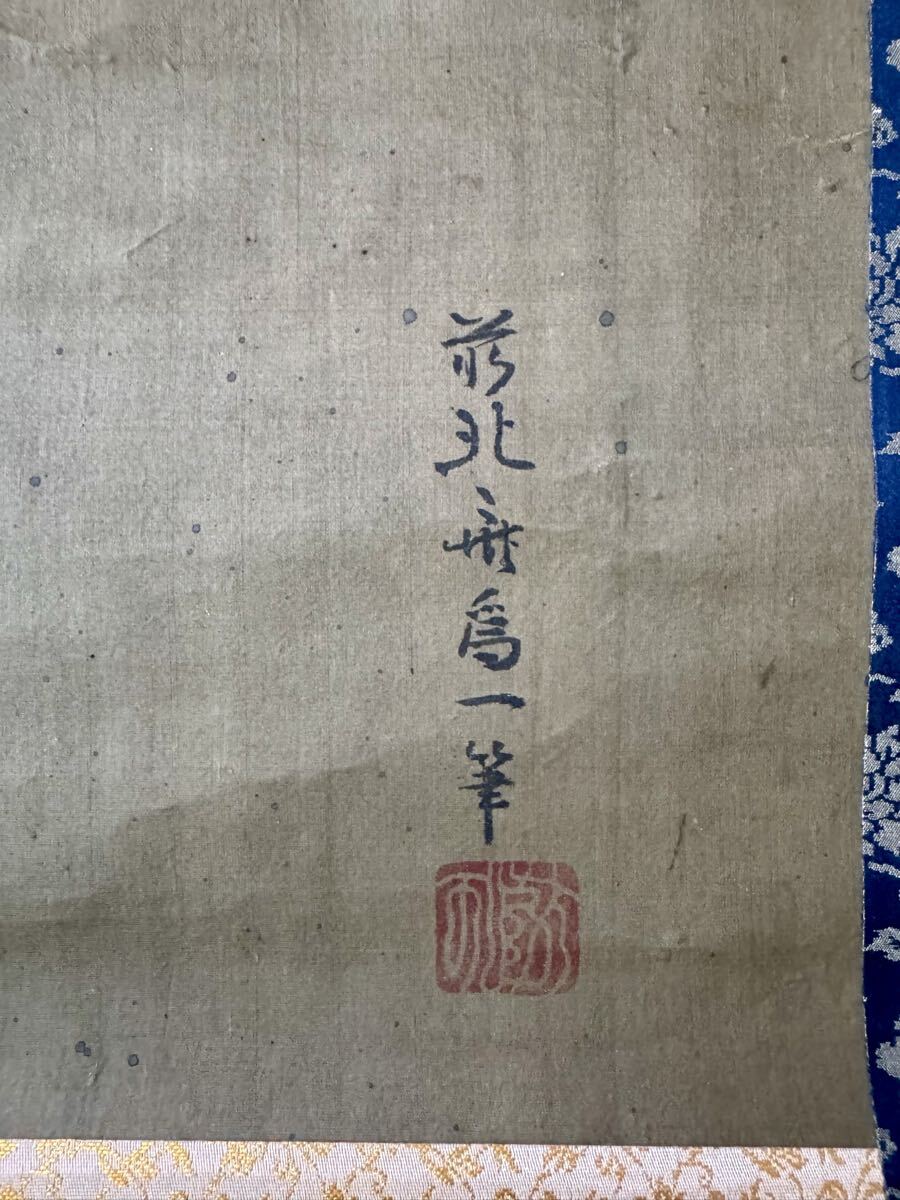 前北斎爲一筆